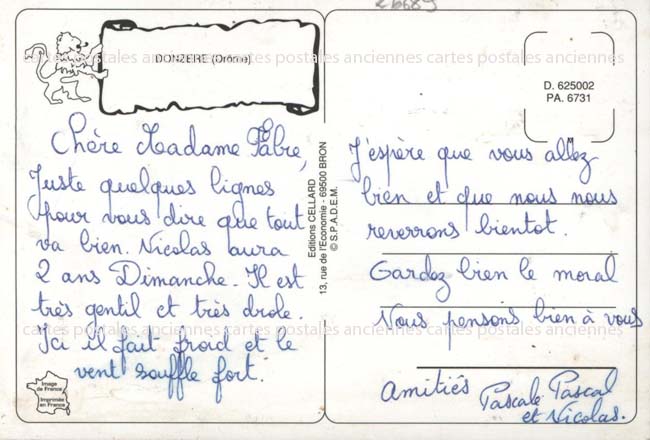 26689
DONZERE (Drôme)
D. 625002
PA. 6731
M
cartes postales anciennes cartes postales anciennes cartes postales anciennes
Chère Madame Fabre,
Juste quelques lignes
pour vous dire que tout
va bien. Nicolas aura
2 ans Dimanche. Il est
très gentil et très drole.
Ici il fait froid et le
vent souffle fort.
Editions CELLARD
13, rue de l'Economie - 69500 BRON
© S.P.A.D.E.M.
J'espère que vous allez
bien et que nous nous
reverrons bientot.
Gardez bien le moral
Nous pensons bien à vous
cartes postales anciennes cartes postales anciennes cartes postales anciennes
Amitiés
Pascale Pascal
et Nicolas.
Image
de France
Imprimée
en France